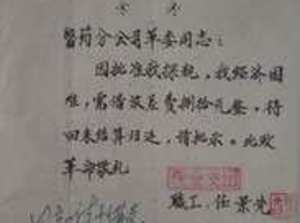 医药分公司革委同志:
因批准我探亲,我经济困
难,需借旅差费捌拾元整,待
回来结算归还,请批示。此致
革命敬礼
职工:任景先